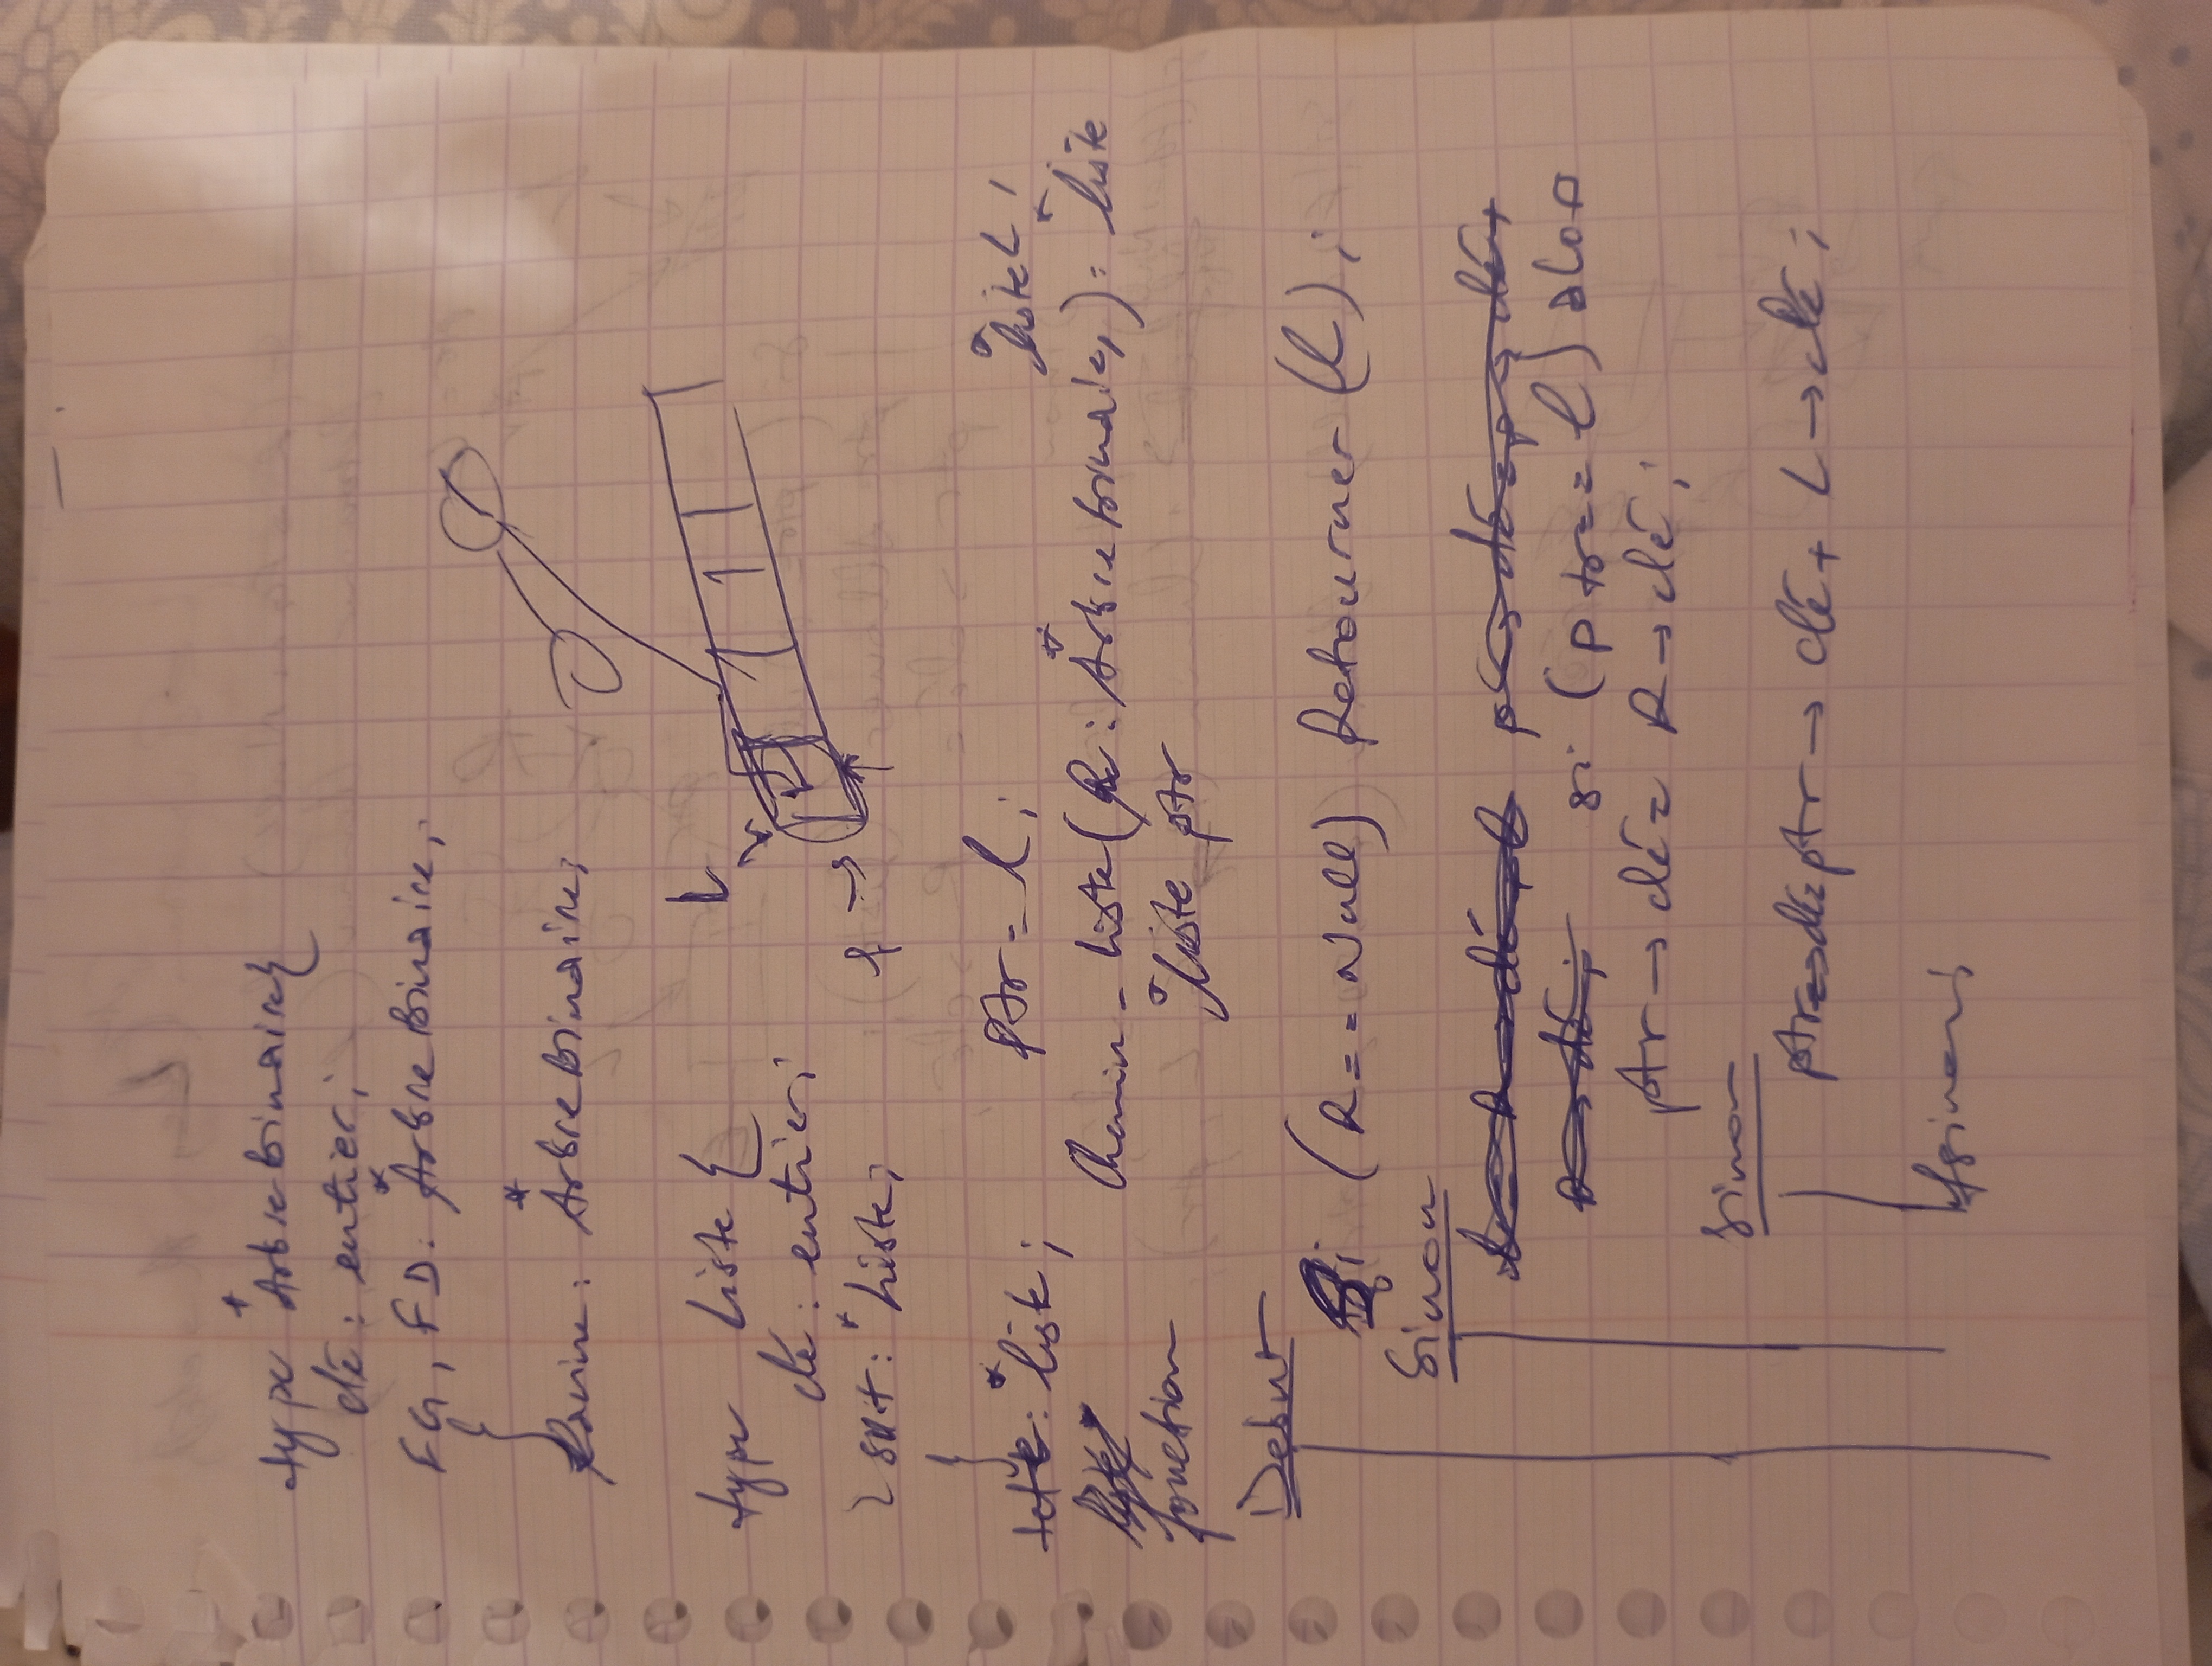 type *Arbre binaire{
clé : entier;
FG, FD : *Arbre Binaire;
}
Racine : *Arbre Binaire;
type Liste {
L
clé : entier;
suit : *Liste;
}
tete : *liste;
ptr = l;
*liste L,
Chemin - Liste (R : *Arbre binaire,) : *liste
fonction
*liste ptr
Debut
Si (R == Null) Retourner (l);
Sinon
si (ptr == l) alors
ptr → clé = R → clé;
Sinon
ptr → clé = ptr → clé + L → clé;
fsinon;